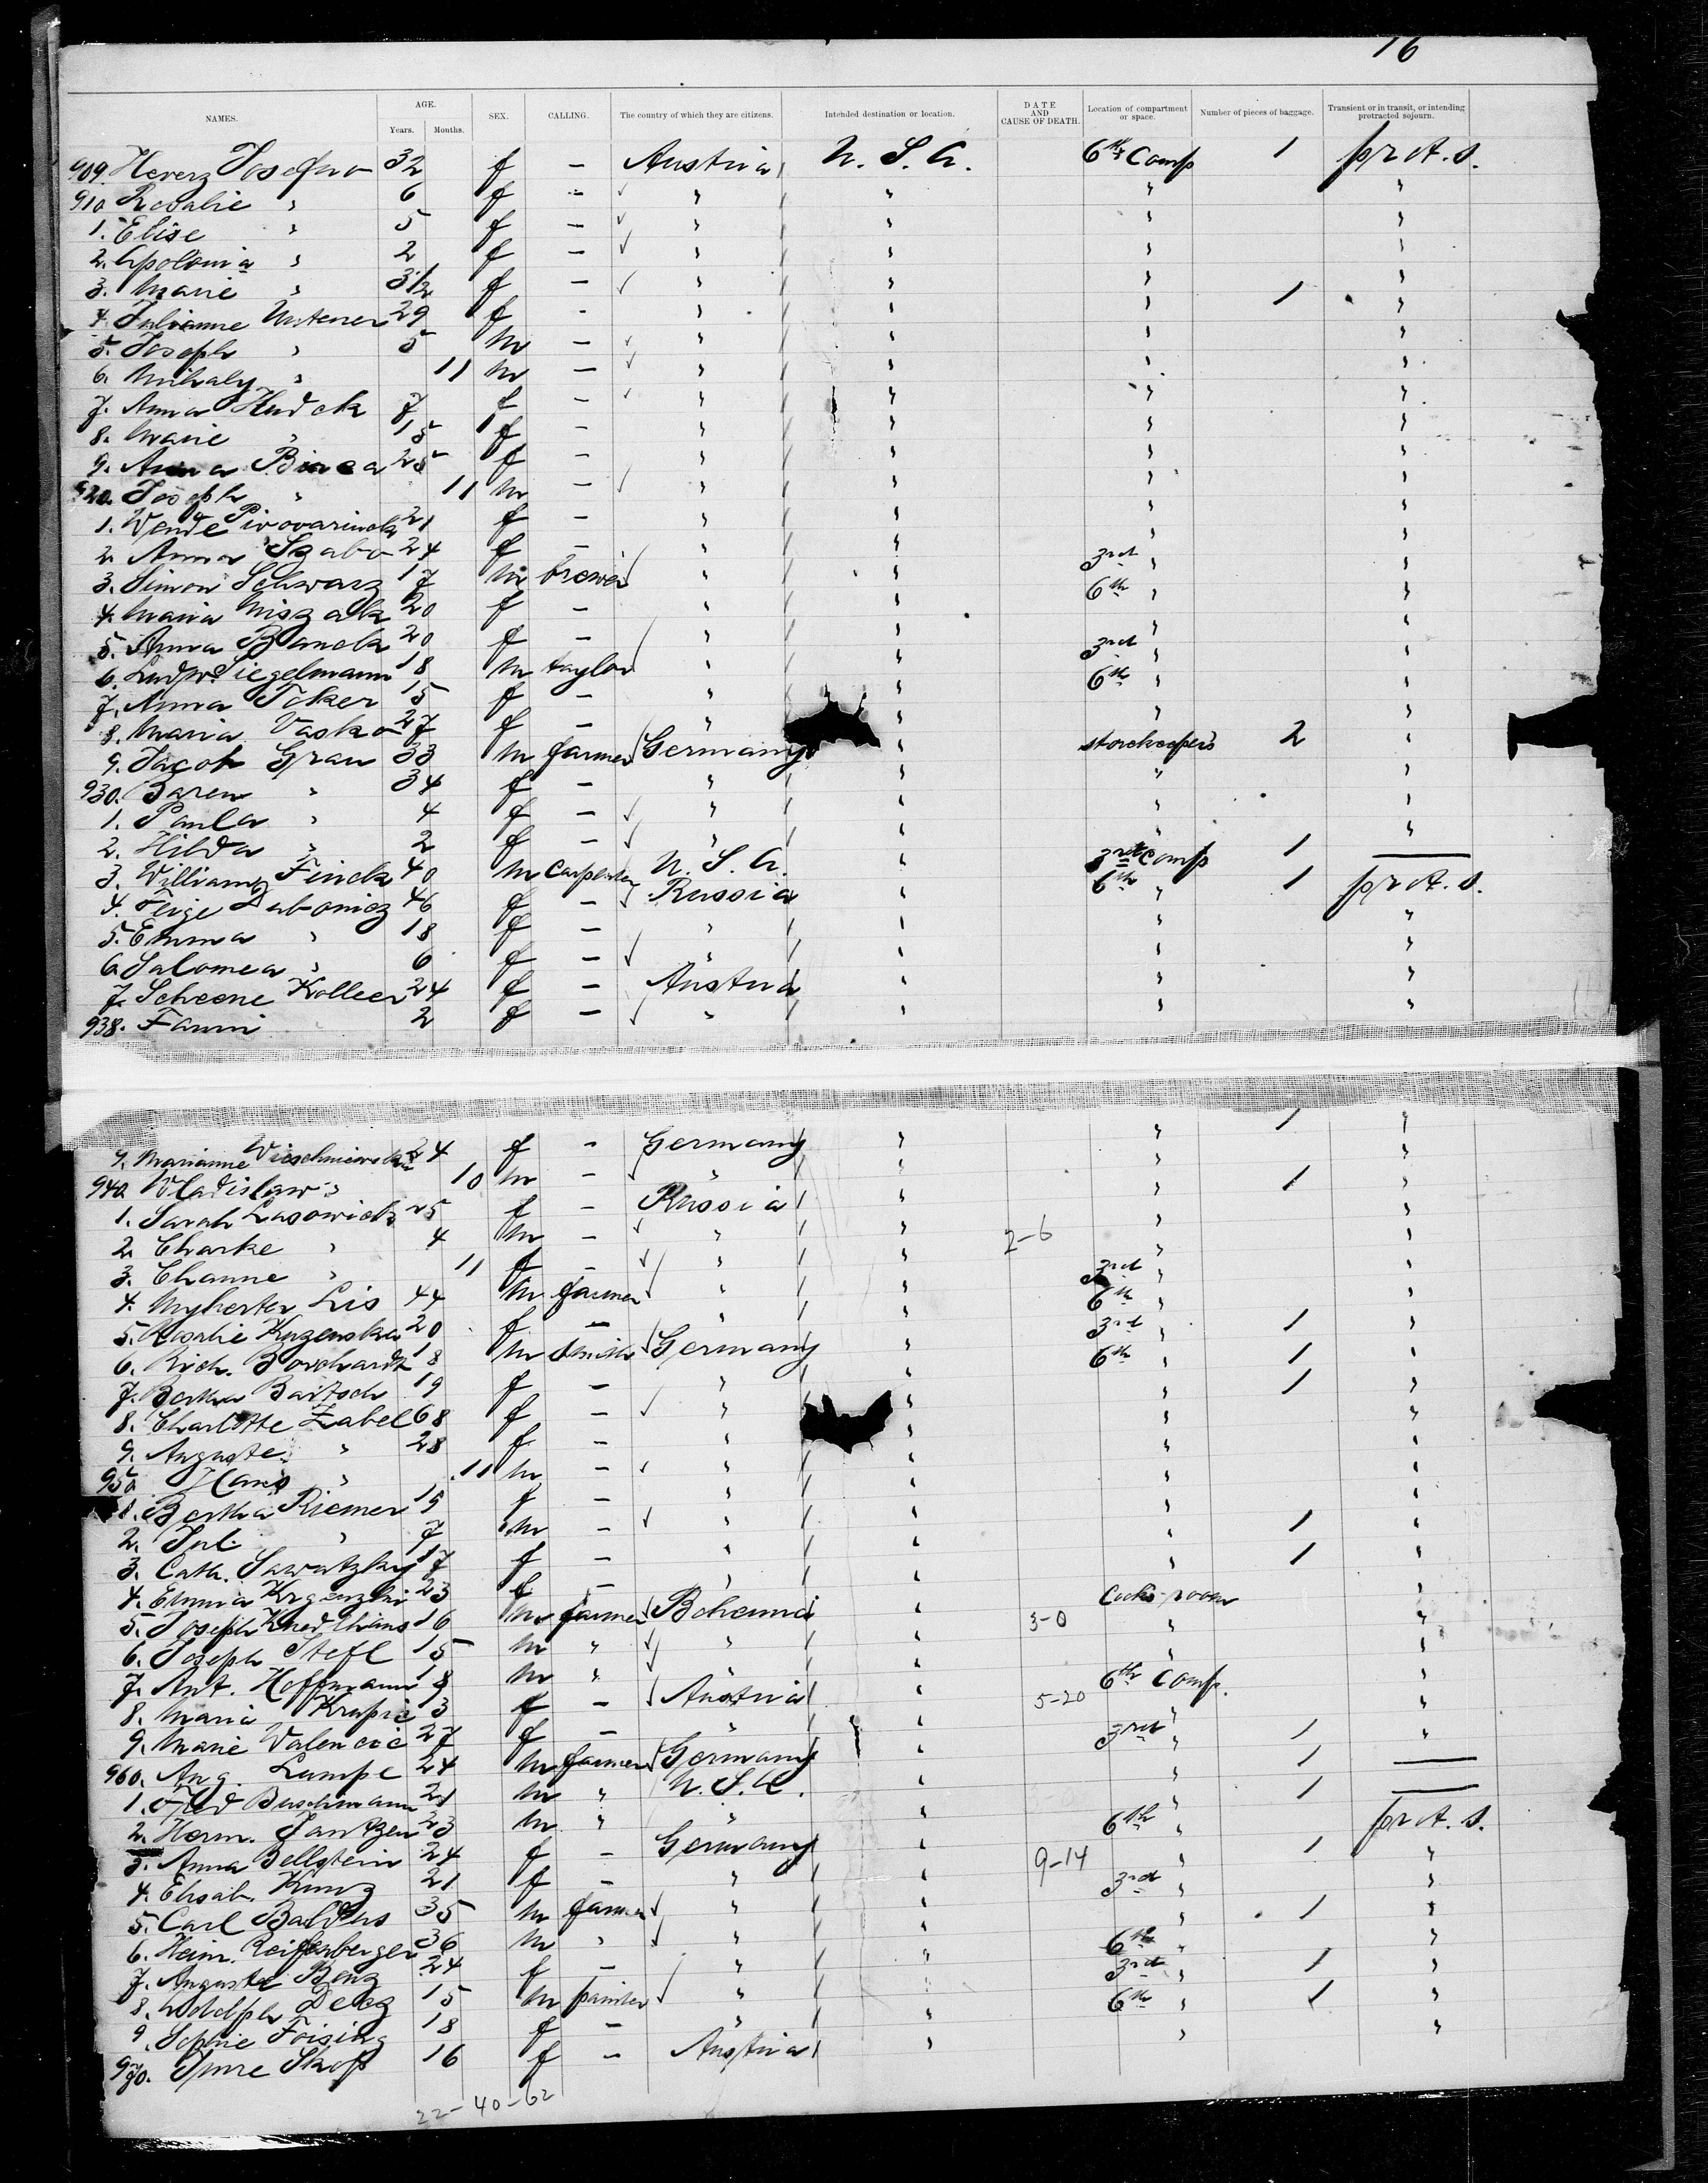 16
NAMES. AGE. Years. Months. SEX. CALLING. The country of which they are citizens. Intended destination or location. DATE AND CAUSE OF DEATH. Location of compartment or space. Number of pieces of baggage. Transient or in transit, or intending protracted sojourn.
909. Hererz 32 f — Austria U. S. A. 6th Comp 1 pr A. s.
910 Rosalie " 6 f — " " " "
1. Elise " 5 f — " " " "
2. Apolonia " 2 f — " " " "
3. Marie " 3 1/2 f — " " " "
4. Julianne 29 f - " " " 1 "
5. Joseph " 5 m — " " " "
6. Mihaly " 11 m — " " " "
7. Anna Hudak 7 f — " " " "
8. Marie " 15 f — " " " "
9. Anna 25 f — " " " "
920. Joseph " 11 m — " " " "
1. 21 f — " " " "
2. Anna Szabo 24 f — " " " "
3. Simon Schwarz 17 m brewer " " 3rd " "
4. Maria 20 f — " " 6th " "
5. Anna 20 f — " " " "
6. Ludw. Siegelmann 18 m taylor " " 3rd " "
7. Anna 15 f — " " 6th " "
8. Maria Vasko 27 f — " " " "
9. Jacob Grau 33 m farmer Germany " storekeepers 2 "
930. " 34 f — " " " "
1. Paula " 4 f — " " " "
2. Hilda " 2 f — " " " "
3. William Finck 40 m carpenter U. S. A. " 3rd comp 1 —
4. Feige 46 f — Russia " 6th " 1 pr A. s.
5. Emma " 18 f — " " " "
6. Salomea " 6 f — " " " "
7. Scheene Koller 24 f — Austria " " "
938. Fanni 2 f — " " " "
9. Marianne 24 f — Germany " " 1 "
940. Wladislaw " 10 m — " " " "
1. Sarah Lasowick 25 f — Russia " " 1 "
2. Charke " 4 m — " " 2-6 " "
3. Channe " 11 f — " " " "
4. Lis 44 m farmer " " 3rd " "
5. Rosalie 20 f — " " 6th " "
6. Rich. Borchardt 18 m smith Germany " 3rd " 1 "
7. Bertha Bartsch 19 f — " " 6th " 1 "
8. Charlotte Zabel 68 f — " " " 1 "
9. Auguste " 28 f — " " " "
950 Hans " 11 m — " " " "
1. Bertha Riemer 19 f — " " " "
2. Jul. " 7 m — " " " "
3. Cath. Sawatzky 17 f — " " " 1 "
4. Emma 23 f — " " " 1 "
5. Joseph 16 m farmer Bohemia " 3-0 Cooks room "
6. Joseph Stefl 15 m " " " " "
7. Ant. Hoffmann 18 m " " " "
8. Maria Krupic 3 f — Austria " 5-20 6th Comp. "
9. Marie Valencic 27 f — " " " "
960. Aug. Lampe 24 m farmer Germany " 3rd " 1 "
1. Fred Buschmann 21 m " U. S. A. " " 1 —
2. Herm. Jantzen 23 m " " " " 1 —
3. Anna Bellstein 24 f — Germany " 6th " pr A. s.
4. Elisab. Kunz 21 f — " " 9-14 " 1 "
5. Carl 35 m farmer " " 3rd " "
6. Heinr. Reifenberger 36 m " " " " 1 "
7. Auguste Benz 24 f — " " 6th " "
8. Adolph 15 m painter " " 3rd " 1 "
9. Sophie 18 f — " " 6th " 1 "
970. 16 f — Austria " " "
22-40-62